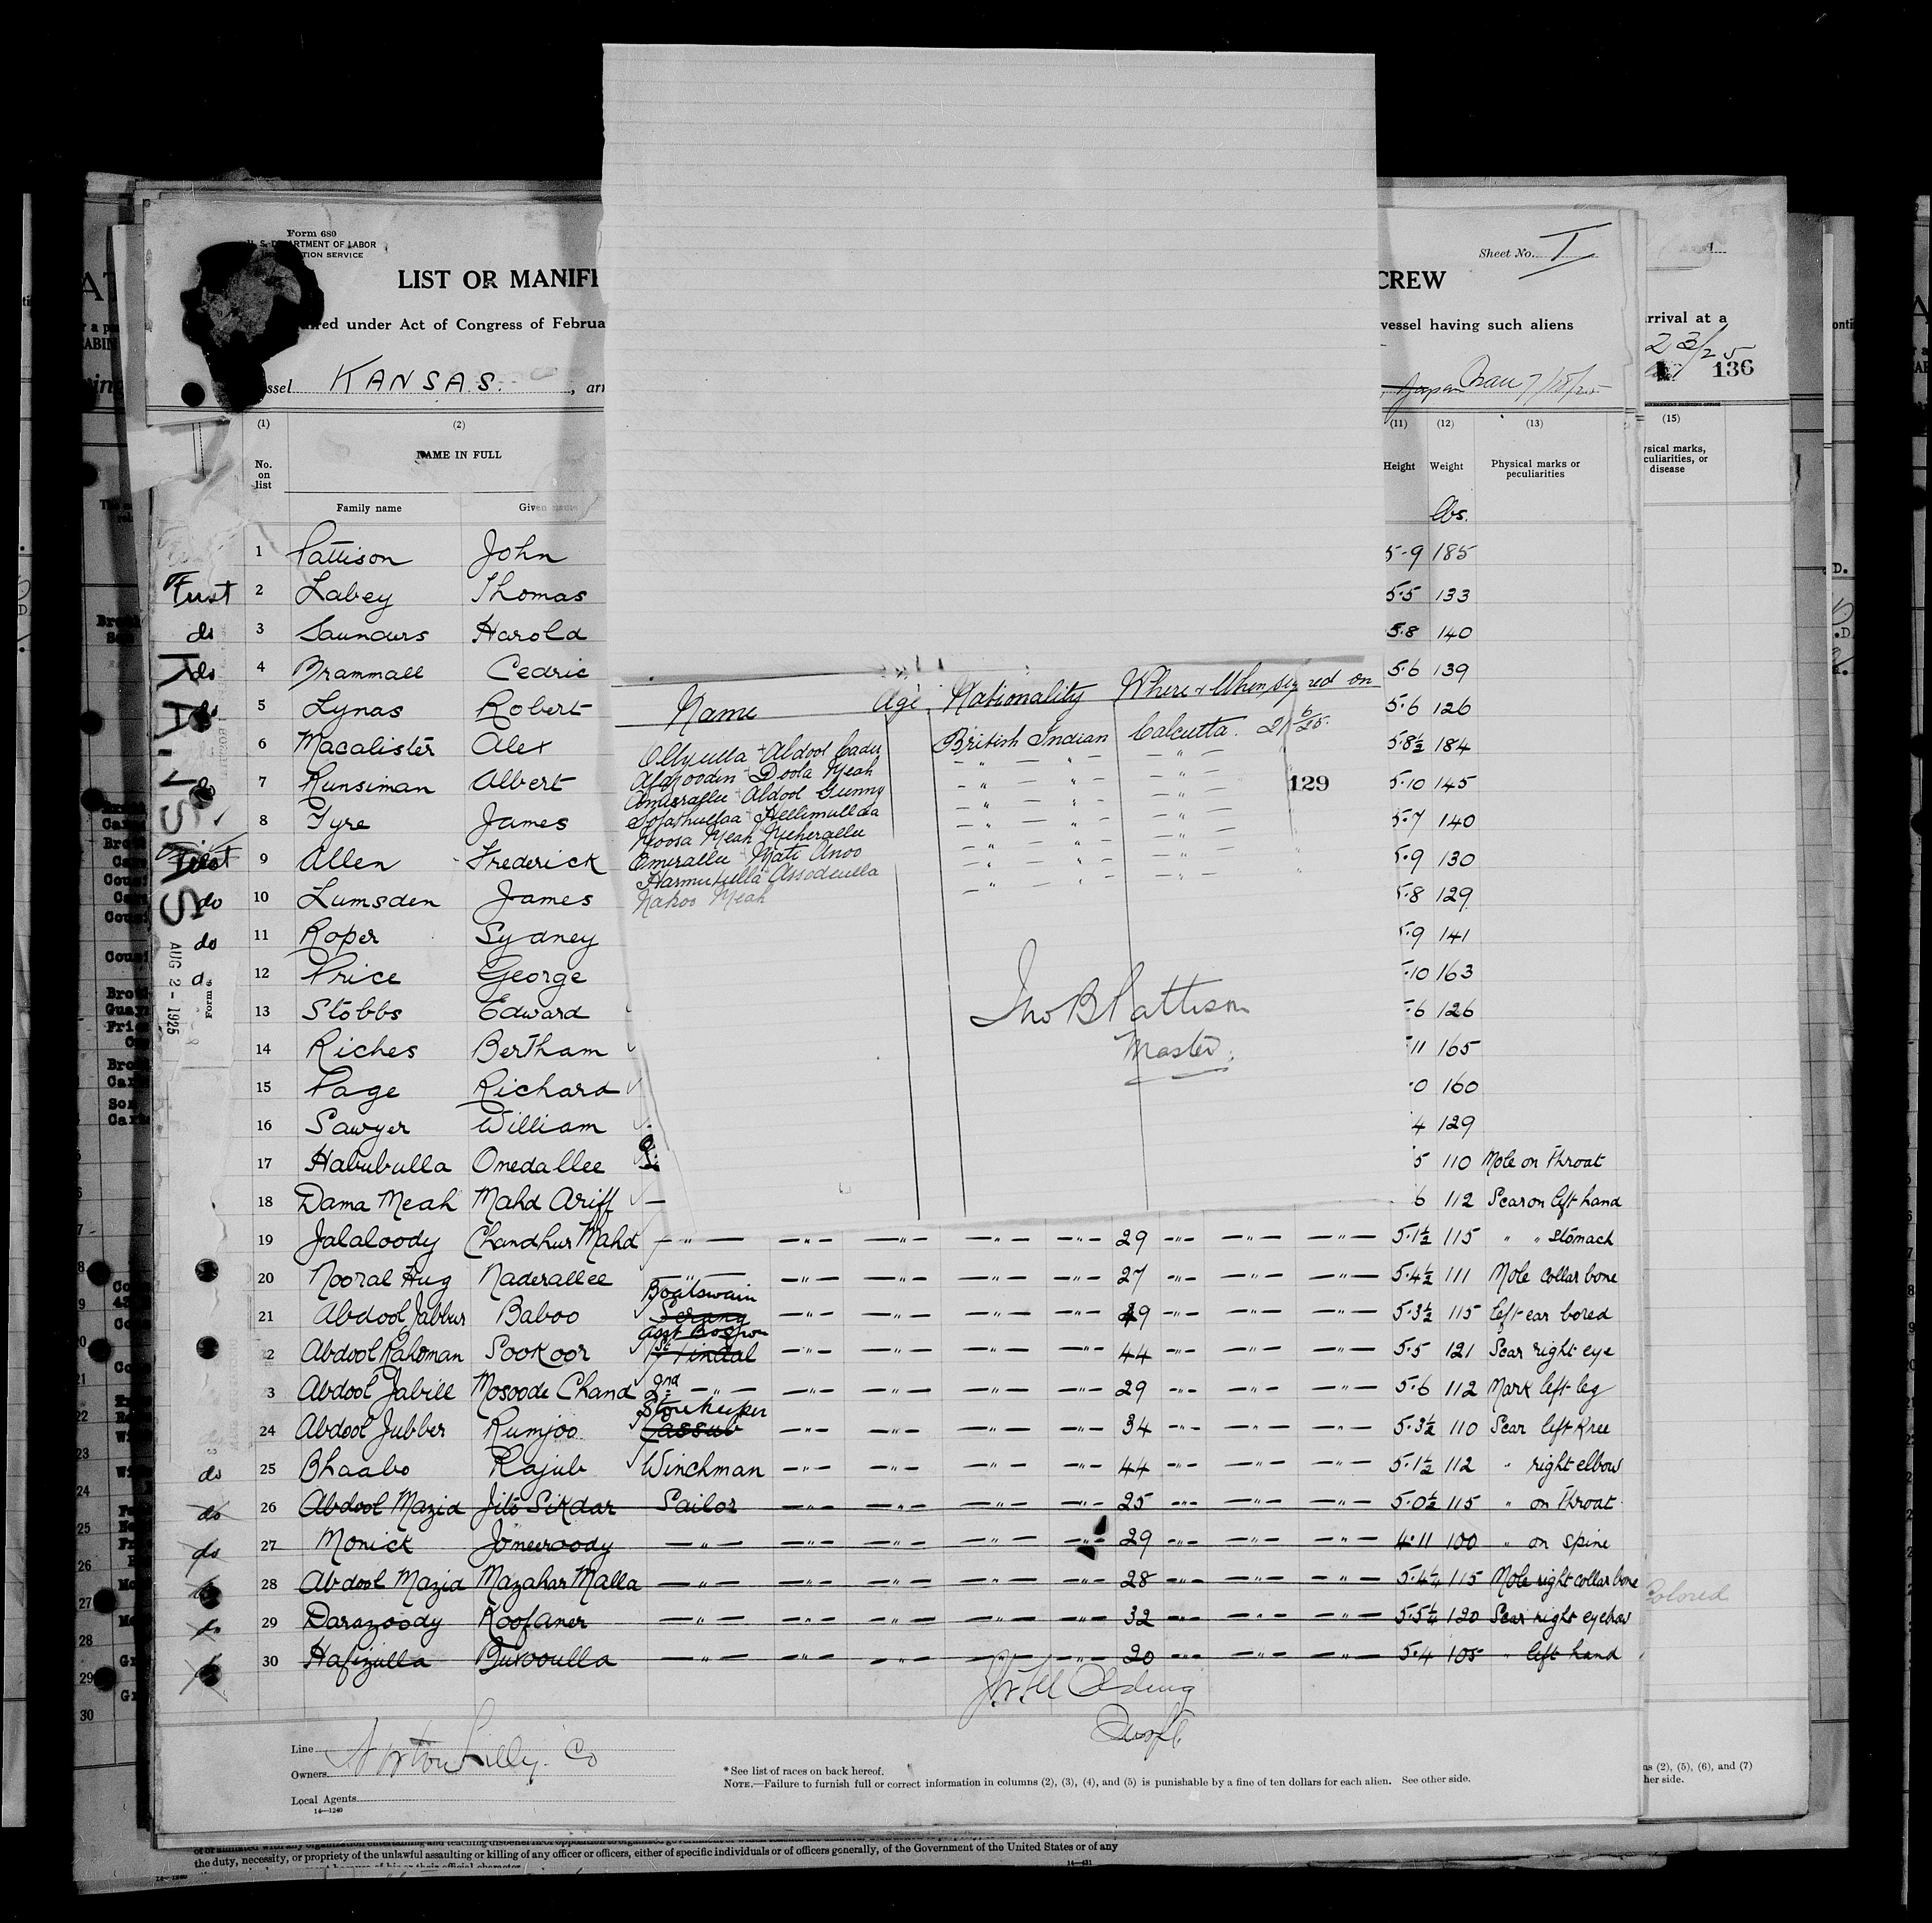 Form 680
U. S. DEPARTMENT OF LABOR
IMMIGRATION SERVICE
Sheet No. I
LIST OR MANIFE
CREW
ired under Act of Congress of Februa
vessel having such aliens
rrival at a
ssel KANSAS. , arr
Japan
7/15/25
23/25
136
(1) (2) (11) (12) (13) (15)
No. on list
NAME IN FULL
Family name Given name
Height Weight
Physical marks or peculiarities
ysical marks, culiarities, or disease
lbs.
1 Pattison John 5-9 185
First 2 Labey Thomas 5·5 133
do 3 Saunders Harold 5·8 140
do 4 Brammall Cedric 5·6 139
5 Lynas Robert 5·6 126
6 Macalister Alex 5·8½ 184
do 7 Runsiman Albert 5·10 145
8 Tyre James 5·7 140
First 9 Allen Frederick 5·9 130
do 10 Lumsden James 5·8 129
do 11 Roper Sydney 5·9 141
12 Price George ·10 163
13 Stobbs Edward ·6 126
14 Riches Bertham 11 165
15 Page Richard ·0 160
16 Sawyer William 4 129
17 Habubulla Onedallee 5 110 Mole on Throat
18 Dama Meah Mahd Ariff — 6 112 Scar on left hand
19 Jalaloody Chandhur Mahd —"— —"— —"— —"— —"— 29 —"— —"— —"— 5·1½ 115 " " Stomach
20 Nooral Hug Naderallee —"— —"— —"— —"— —"— 27 —"— —"— —"— 5·4½ 111 Mole collar bone
21 Abdool Jabbur Baboo Boatswain Serang —"— —"— —"— —"— 39 —"— —"— —"— 5·3½ 115 left ear bored
2 Abdool Rahoman Sookoor Asst Bosswn 1st Tindal —"— —"— —"— —"— 44 —"— —"— —"— 5·5 121 Scar right eye
3 Abdool Jabill Mosoode Chand 2nd —"— —"— —"— —"— —"— 29 —"— —"— —"— 5·6 112 Mark left leg
24 Abdool Jubber Rumjoo Storekeeper Cassub —"— —"— —"— —"— 34 —"— —"— —"— 5·3½ 110 Scar left Knee
do 25 Bhaabo Rajub Winchman —"— —"— —"— —"— 44 —"— —"— —"— 5·1½ 112 " right elbow
do 26 Abdool Mazid Jito Sikdar Sailor —"— —"— —"— —"— 25 —"— —"— —"— 5·0½ 115 " on Throat
do 27 Monick Jomeeroody —"— —"— —"— —"— —"— 29 —"— —"— —"— 4·11 100 " on spine
28 Abdool Mazid Mazahar Malla —"— —"— —"— —"— —"— 28 —"— —"— —"— 5·4¼ 115 Mole right collar bone
29 Darazoody Koofaner —"— —"— —"— —"— —"— 32 —"— —"— —"— 5·5¼ 120 Scar right eyebrow
30 Hafizulla Burooulla —"— —"— —"— —"— —"— 20 —"— —"— —"— 5·4 105 " left hand
Colored
KANSAS
AUG 2 - 1925
Form 6
Name Age Nationality Where & When signed on
Ollyulla Abdool Cader British Indian Calcutta. 21 6/25.
Afazoodin Doola Meah
Amiserallee Abdool Gunny
Sofathullaa Hellimullaa
Moosa Meah Meherallee
Omerallee Mati Anoo
Harmutulla Assodeulla
Nakoo Meah
129
Jno B Pattison
Master.
Line
Norton Lilly Co
Owners
Local Agents
14—1240
* See list of races on back hereof.
NOTE.—Failure to furnish full or correct information in columns (2), (3), (4), and (5) is punishable by a fine of ten dollars for each alien. See other side.
ns (2), (5), (6), and (7)
her side.
the duty, necessity, or propriety of the unlawful assaulting or killing of any officer or officers, either of specific individuals or of officers generally, of the Government of the United States or of any